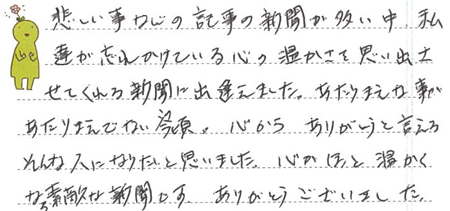 悲しい事などの記事の新聞が多い中、私
達が忘れかけている心の温かさを思い出さ
せてくれる新聞に出逢えました。あたりまえな事が
あたりまえでない今頃。心から ありがとうと言える
そんな人になりたいと思いました。心がほっと温かく
なる素敵な新聞です。ありがとうございました。